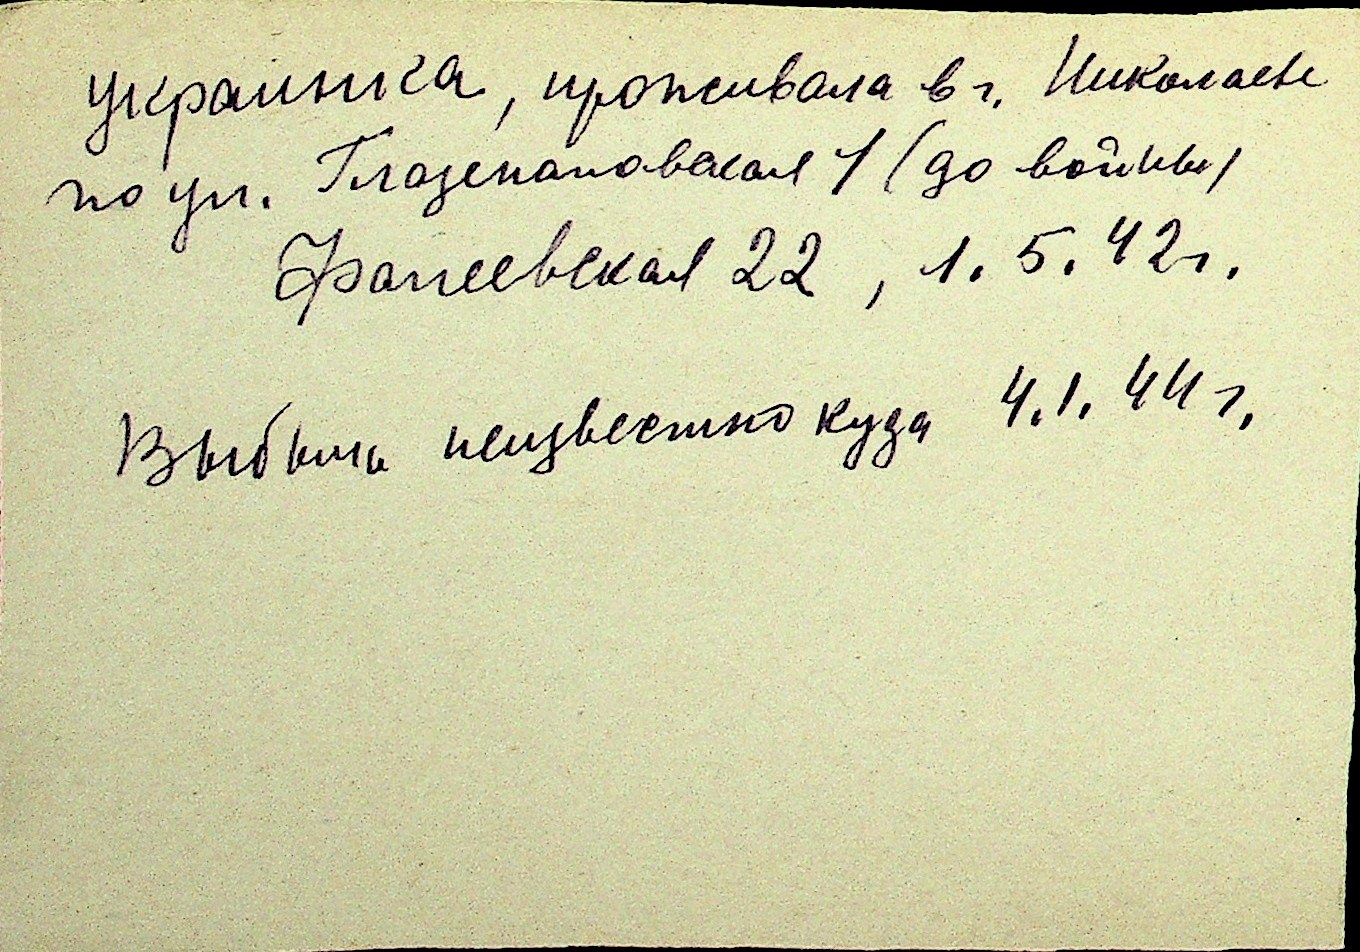 украинка, проживала в г. Николаеве
по ул. Глазенаповская 1 (до войны)
Фалеевская 22, 1.5.42г.
Выбыла неизвестно куда 4.1.44г.